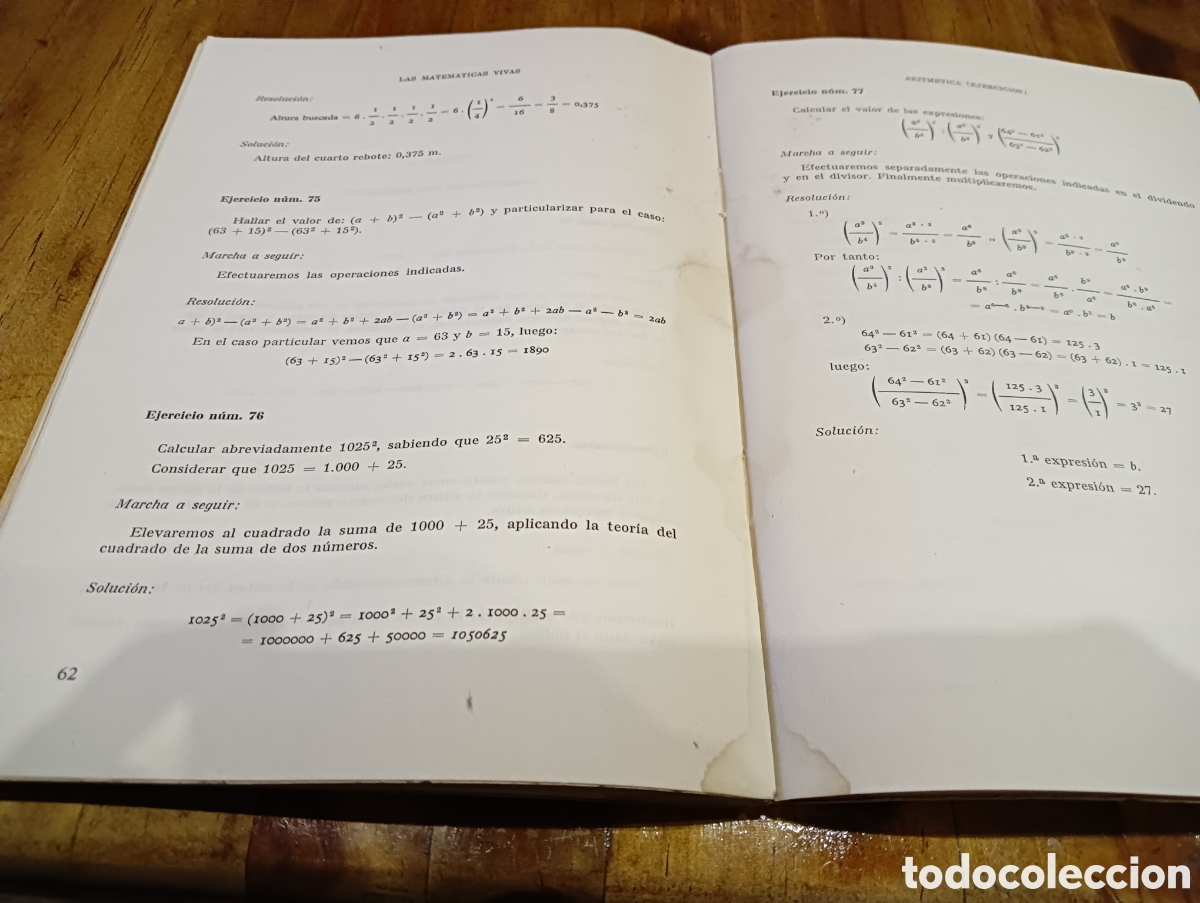 LAS MATEMATICAS VIVAS
Resolución:
Altura buscada = 6 . 1/2 . 1/2 . 1/2 . 1/2 = 6 . (1/4)² = 6/16 = 3/8 = 0,375
Solución:
Altura del cuarto rebote: 0,375 m.
Ejercicio núm. 75
Hallar el valor de: (a + b)² — (a² + b²) y particularizar para el caso:
(63 + 15)² — (63² + 15²).
Marcha a seguir:
Efectuaremos las operaciones indicadas.
Resolución:
a + b)² — (a² + b²) = a² + b² + 2ab — (a² + b²) = a² + b² + 2ab — a² — b² = 2ab
En el caso particular vemos que a = 63 y b = 15, luego:
(63 + 15)² — (63² + 15²) = 2 . 63 . 15 = 1890
Ejercicio núm. 76
Calcular abreviadamente 1025², sabiendo que 25² = 625.
Considerar que 1025 = 1.000 + 25.
Marcha a seguir:
Elevaremos al cuadrado la suma de 1000 + 25, aplicando la teoría del
cuadrado de la suma de dos números.
Solución:
1025² = (1000 + 25)² = 1000² + 25² + 2 . 1000 . 25 =
= 1000000 + 625 + 50000 = 1050625
62
ARITMETICA (EJERCICIOS)
Ejercicio núm. 77
Calcular el valor de las expresiones:
Marcha a seguir:
Efectuaremos separadamente las operaciones indicadas en el dividendo
y en el divisor. Finalmente multiplicaremos.
Resolución:
1.º)
Por tanto:
2.º)
64² — 61² = (64 + 61) (64 — 61) = 125 . 3
63² — 62² = (63 + 62) (63 — 62) = (63 + 62) . 1 = 125 . 1
luego:
((64² — 61²)/(63² — 62²))³ = ((125 . 3)/(125 . 1))³ = (3/1)³ = 3³ = 27
Solución:
1.ª expresión = b.
2.ª expresión = 27.
todocoleccion